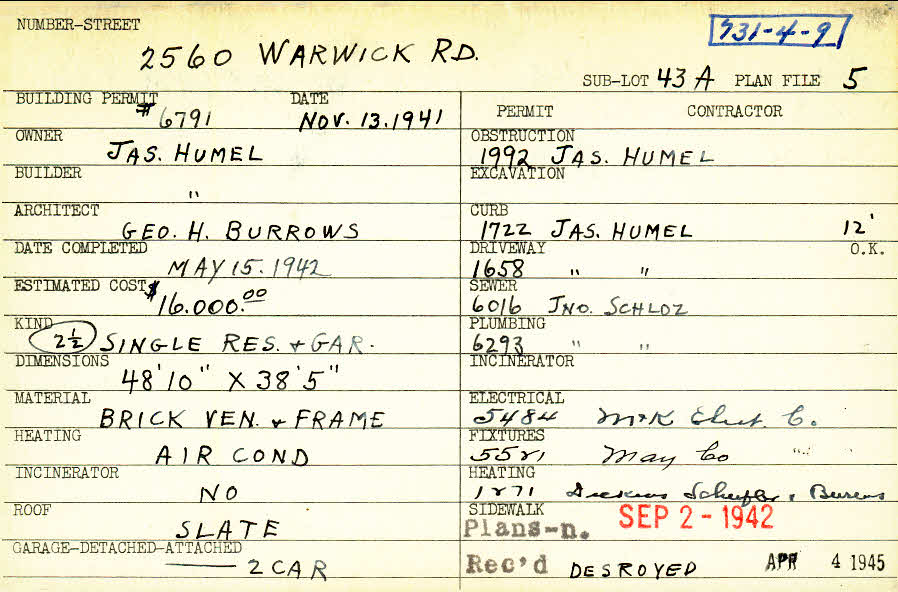 NUMBER-STREET
731-4-9
2560 WARWICK RD.
SUB-LOT 43A PLAN FILE 5
BUILDING PERMIT DATE
#6791 NOV. 13.1941
OWNER
JAS. HUMEL
BUILDER
"
ARCHITECT
GEO. H. BURROWS
DATE COMPLETED
MAY 15. 1942
ESTIMATED COST
$16.000.00
KIND
2½ SINGLE RES. + GAR.
DIMENSIONS
48'10" X 38'5"
MATERIAL
BRICK VEN. + FRAME
HEATING
AIR COND
INCINERATOR
NO
ROOF
SLATE
GARAGE-DETACHED-ATTACHED
—— 2 CAR
PERMIT CONTRACTOR
OBSTRUCTION
1992 JAS. HUMEL
EXCAVATION
CURB
1722 JAS. HUMEL 12'
DRIVEWAY O.K.
1658 " "
SEWER
6016 JNO. SCHLOZ
PLUMBING
6293 " "
INCINERATOR
ELECTRICAL
5484 Elect. Co.
FIXTURES
5521 May Co "
HEATING
1271
SIDEWALK
Plans-n. SEP 2-1942
Rec'd DESROYED APR 4 1945